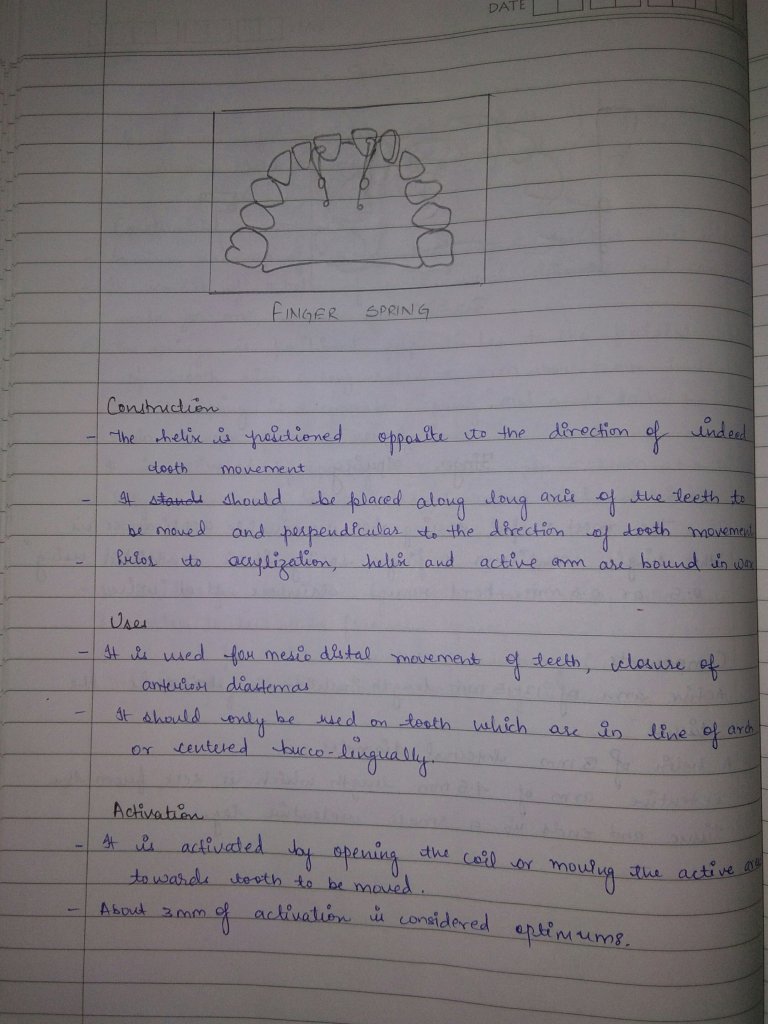 DATE
FINGER SPRING
Construction
- The helix is positioned opposite to the direction of indeed
tooth movement
- It stands should be placed along long axis of the teeth to
be moved and perpendicular to the direction of tooth movement
- Prior to acrylization, helix and active arm are bound in wax
Uses
- It is used for mesio distal movement of teeth, closure of
anterior diastemas
- It should only be used on tooth which are in line of arch
or centered bucco-lingually.
Activation
- It is activated by opening the coil or moving the active arm
towards tooth to be moved.
- About 3mm of activation is considered optimums.